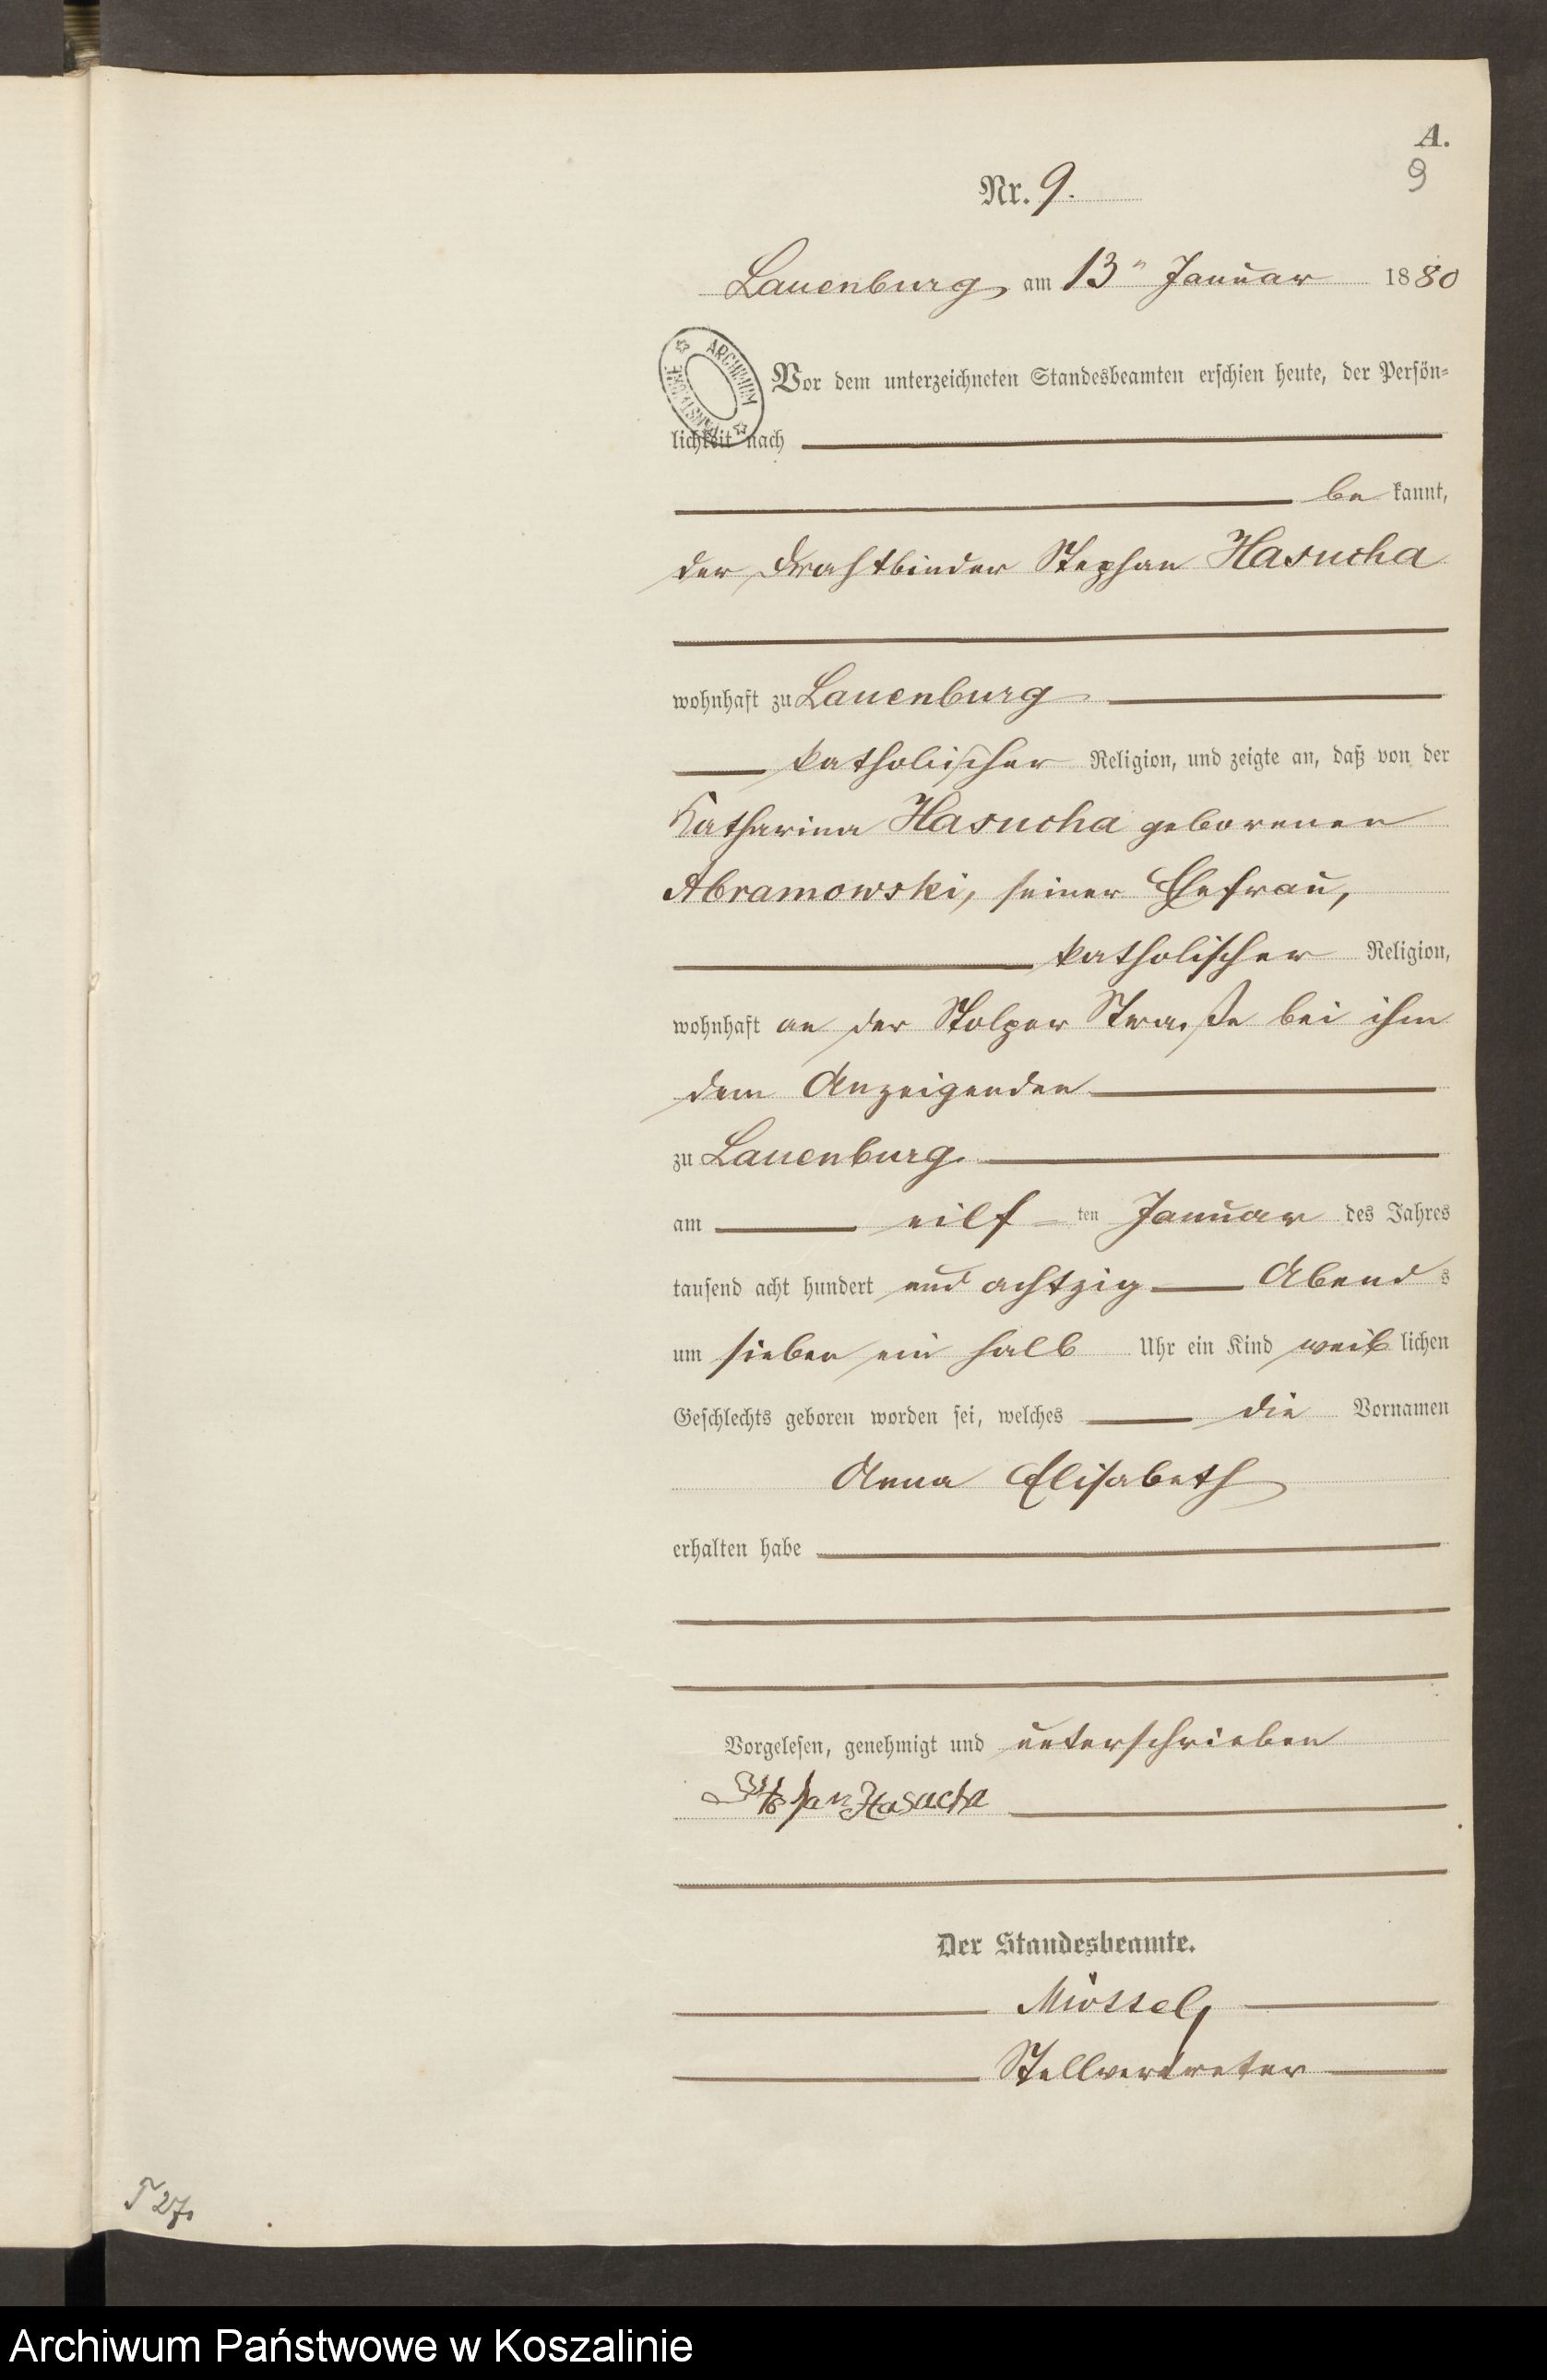 A.
9
Nr. 9.
Lauenburg, am 13ⁿ Januar 1880
ARCHIWUM
Vor dem unterzeichneten Standesbeamten erschien heute, der Persön=
lichkeit nach
be kannt,
der Drahtbinder Stephan Hasucha
wohnhaft zu Lauenburg
katholischer Religion, und zeigte an, daß von der
Katharina Hasucha geborenen
Abramowski, seiner Ehefrau,
katholischer Religion,
wohnhaft an der Stolper Straße bei ihm
dem Anzeigenden
zu Lauenburg
am eilf ten Januar des Jahres
tausend acht hundert und achtzig Abend s
um sieben ein halb Uhr ein Kind weib lichen
Geschlechts geboren worden sei, welches die Vornamen
Anna Elisabeth
erhalten habe
Vorgelesen, genehmigt und unterschrieben
Hasucha
Der Standesbeamte.
Stellvertreter
T 27.
Archiwum Państwowe w Koszalinie